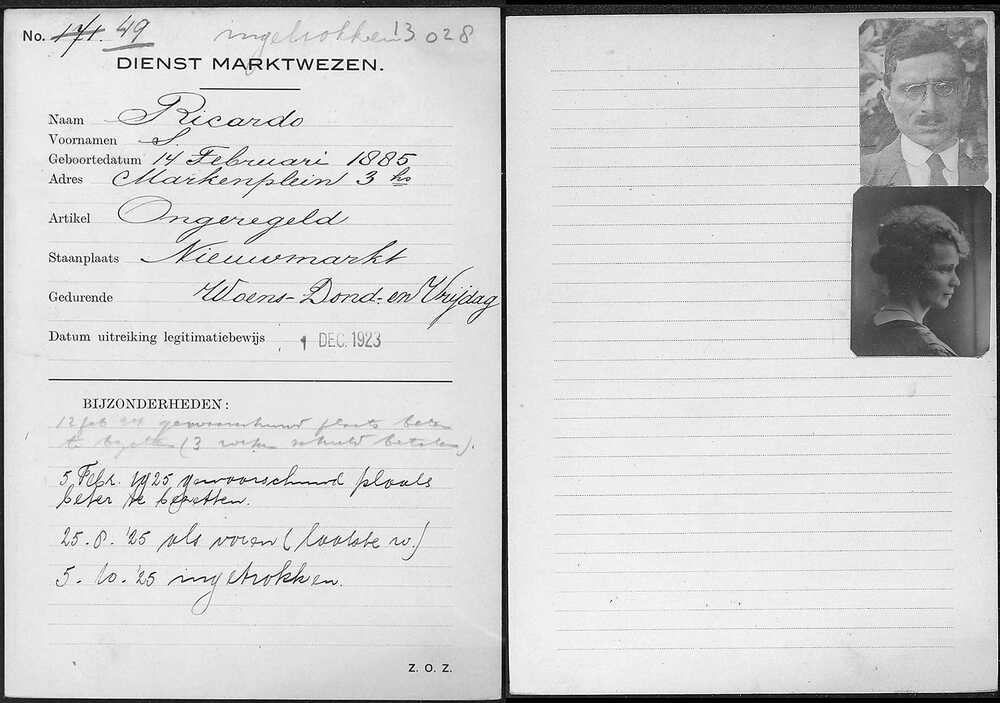 No. 171. 49 ingetrokken 13 028
DIENST MARKTWEZEN.
Naam Ricardo
Voornamen S.
Geboortedatum 14 Februari 1885
Adres Markenplein 3 hs
Artikel Ongeregeld
Staanplaats Nieuwmarkt
Gedurende Woens- Dond- en Vrijdag
Datum uitreiking legitimatiebewijs 1 DEC. 1923
BIJZONDERHEDEN:
12 feb 24 gewaarschuwd plaats beter
te bezetten (3 weken schuld betalen).
5 Febr. 1925 gewaarschuwd plaats
beter te bezetten.
25.8.'25 als voren (laatste w.)
5.10.'25 ingetrokken.
Z. O. Z.